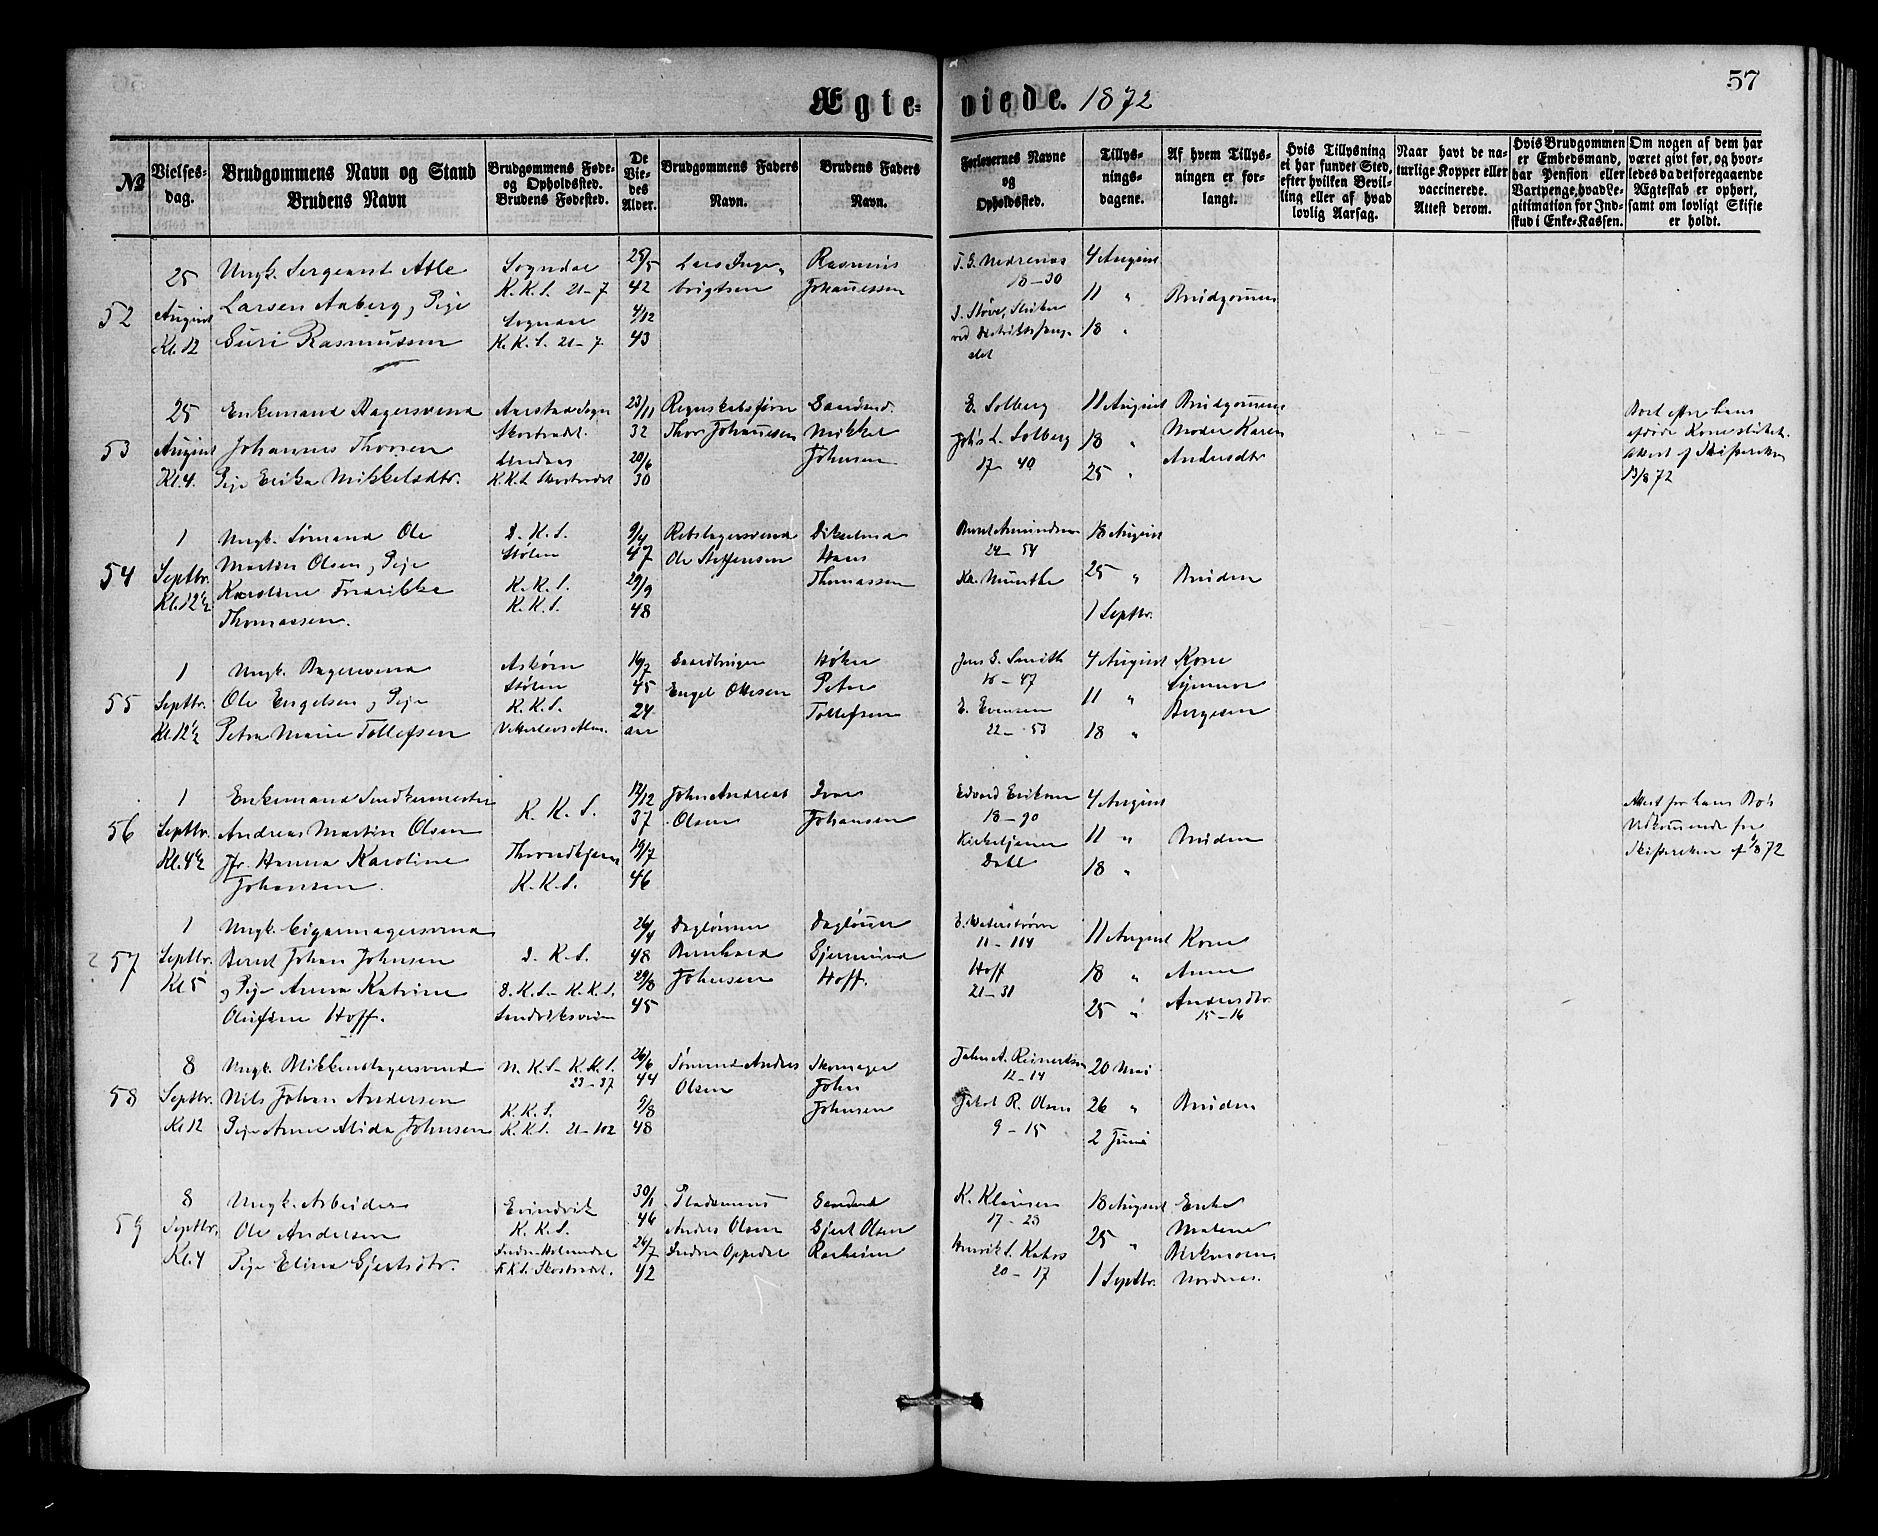 57
Ægteviede. 1872
№
Vielsesdag.
Brudgommens Navn og Stand
Brudens Navn
Brudgommens Føde- og Opholdssted.
Brudens Fødested.
De Viedes Alder.
Brudgommens Faders Navn.
Brudens Faders Navn.
Forlovernes Navne og Opholdssted.
Tillysningsdagene.
Af hvem Tillysningen er forlangt.
Hvis Tillysning ei har fundet Sted, efter hvilken Bevilling eller af hvad lovlig Aarsag.
Naar havt de naturlige Kopper eller vaccinerede. Attest derom.
Hvis Brudgommen er Embedsmand, har Pension eller Vartpenge, hvad Legitimation for Indskud i Enke-Kassen.
Om nogen af dem har været gift før, og hvorledes da det foregaaende Ægteskab er ophørt, samt om lovligt Skifte er holdt.
52
25 August Kl. 12
Ungk. Sergeant Atle
Larsen Aaberg, Pige
Guri Rasmussen
Sogndal
K. K. S. 21-7
Sogndal
K. K. S. 21-7
25/5 42
4/12 43
Lars Inge-
brigtsen
Rasmus
Johannessen
18-30
4 August
11 "
18 "
Brudgommen
53
25 August Kl. 4.
Enkemand Bagersvend
Johannes Thorsen
Pige Erika Mikkelsdtr.
Aarstad Sogn
Skostrædet.
K.K.S. Skostrædet
23/11 32
20/6 30
Thor Johannessen
Gaardmd.
Mikkel
Johnsen
E. Solberg
Johs L. Solberg
17-40
11 August
18 "
25 "
Brudgommens
Moder Karen
Andersdtr
13/8 72
54
1 Septbr. Kl. 12 1/2
Ungk. Sømand Ole
Martin Olsen, Pige
Karoline Fredrikke
Thomassen.
D. K. S.
Stølen
K. K. S.
K. K. S.
9/4 47
29/9 48
Rebslagersvend
Ole Steffensen
Hans
Thomassen
Bernt Amundsen
24-54
Kr. Munthe
18 August
25 "
1 Septbr.
Bruden
55
1 Septbr. Kl. 12 1/2
Ungk. Bagersvend
Ole Engelsen, Pige
Petra Marie Tollefsen
Askøen
Stølen
K. K. S.
16/7 45
24 aar
Engel Olsen
Høker
Peter
Tollefsen
Jens S. Smith
18-47
E. Evensen
22-53
4 August
11 "
18 "
Kone
56
1 Septbr. Kl. 4 1/2
Enkemand Snedkermester
Andreas Martin Olsen
Jfr. Hanna Karoline
Johansen.
K. K. S.
Throndhjem
K. K. S.
12/12 37
19/7 46
John Andreas
Olsen
Ivar
Johansen
Edvard Eriksen
18-90
Kirketjener
Dahl
4 August
11 "
18 "
Bruden
57
1 Septbr. Kl 5
Ungk. Cigarmagersvend
Bernt Johan Johnsen
og Pige Anna Katrine
Olufine Hoff.
D. K. S.
D. K. S - K. K. S.
Sandviksveien
26/4 48
29/8 45
Dagløner
Bernhard
Johnsen
Dagløner
Gjermund
Hoff.
E. Westerstrøm
11-114
Hoff
21-31
11 August
18 "
25 "
Kone
Anne
Andersdtr.
15-16
58
8 Septbr. Kl 12
Ungk. Blikkenslagersvend
Nils Johan Andersen
Pige Anne Alida Johnsen
N. K. S - K. K. S.
23-37
K. K. S.
K. K. S. 21-102
26/6 44
5/8 48
Sømand Andreas
Olsen
Skomager
John
Johnsen
John A. Reinertsen
12-14
Jakob R. Olsen
9-15
20 Mai
26 "
2 Juni
Bruden
59
8 Septbr. Kl. 4
Ungk. Arbeider
Ole Andersen
Pige Elina Gjertsdtr.
Evindvik
K. K. S.
K.K.S. Skostrædet.
30/1 46
24/7 42
Pladsmand
Anders Olsen
Indre Oppedal
Gaardmd
Gjert Olsen
K. Klausen
17-23
Henrik S. Kahrs
20-17
18 August
25 "
1 Septbr.
Enke
Malene
Nordnæs.